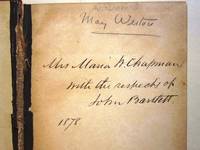 May Weston
Mrs Maria W. Chapman
with the respects of
John Bartlett.
1878